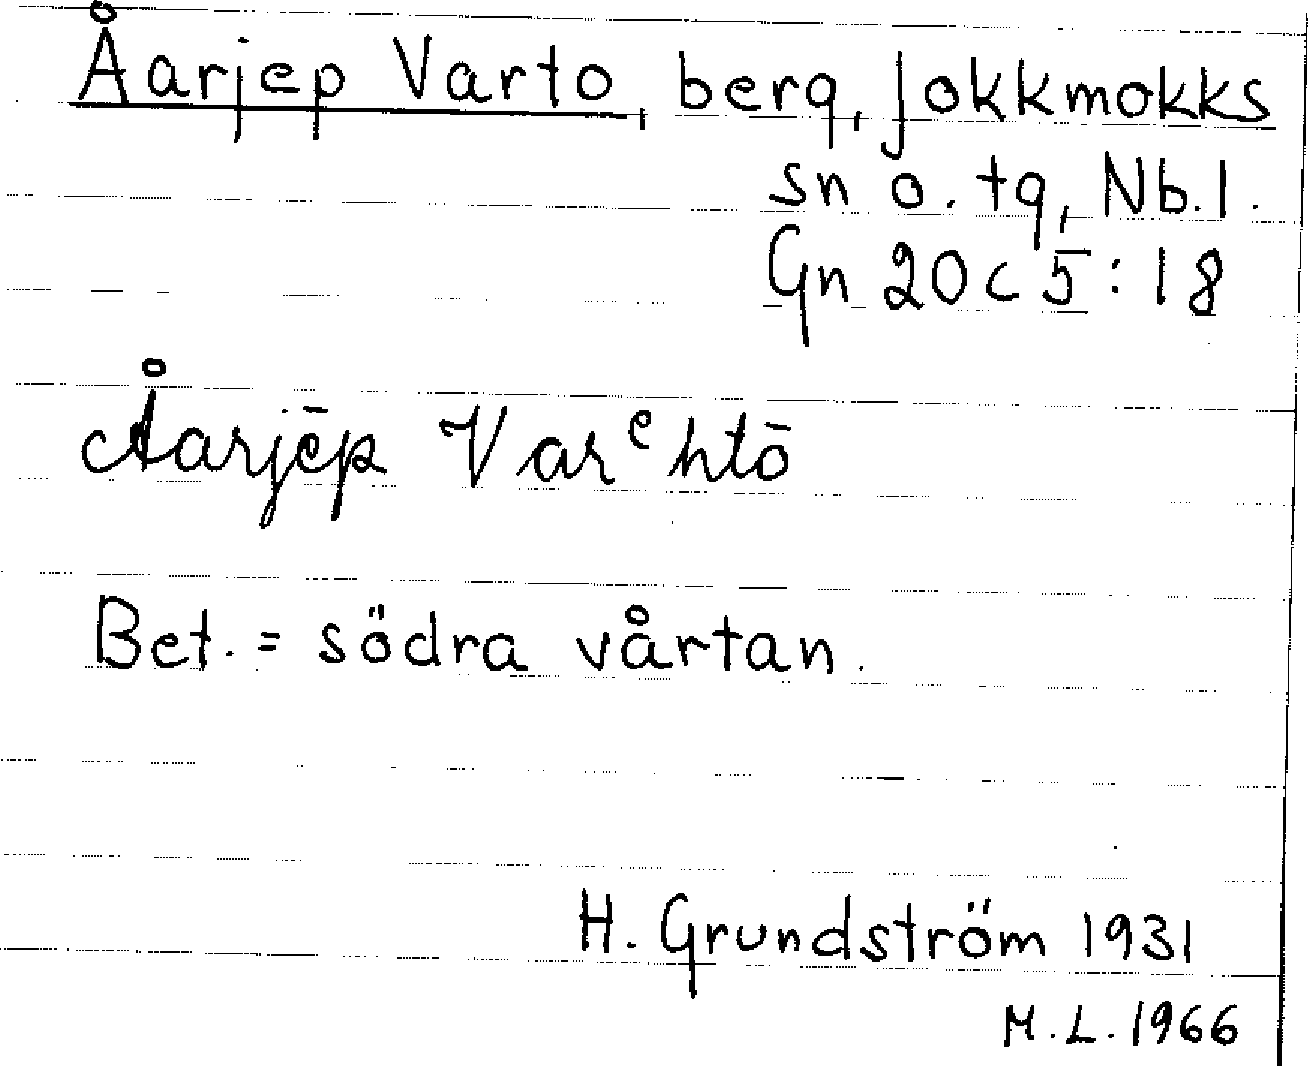 Åarjep Varto, berg, Jokkmokks
sn o. tg, Nb.l.
Gn 20 c 5:18
Åarjēp Varᵉhtō
Bet. = södra vårtan.
H. Grundström 1931
M.L. 1966